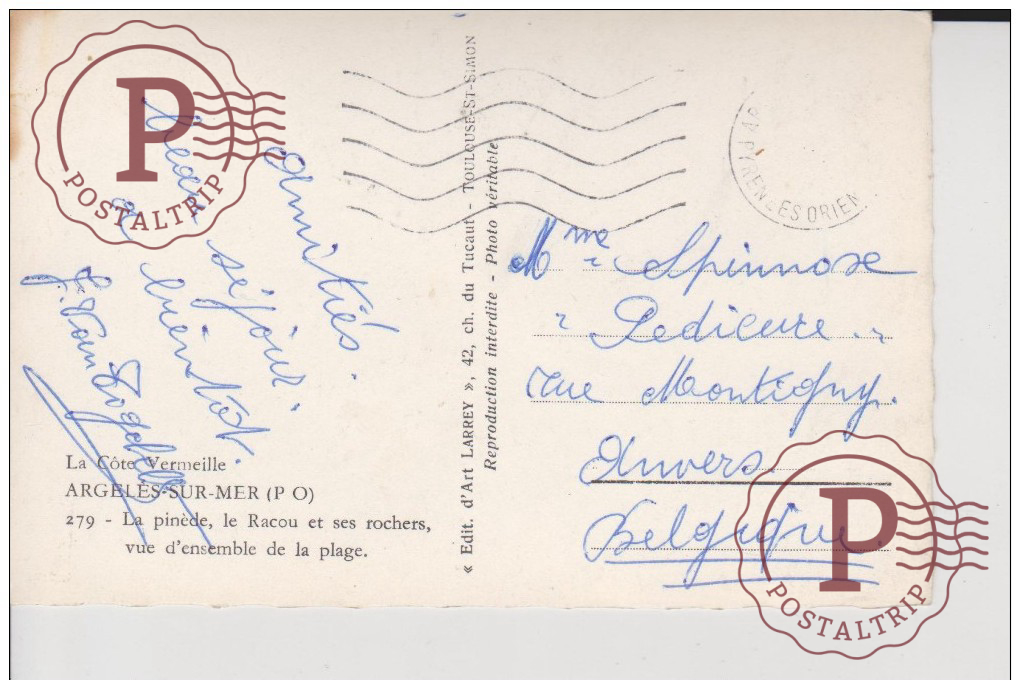 Amitiés.
séjour.
bientôt.
La Côte Vermeille
ARGELÈS-SUR-MER (P O)
279 - La pinède, le Racou et ses rochers,
vue d'ensemble de la plage.
« Edit. d'Art LARREY », 42, ch. du Tucaut - TOULOUSE-ST-SIMON
Reproduction interdite - Photo véritable
PYRENEES ORIEN
Mme Spinnox
" Pedicure "
rue Montigny.
Anvers.
Belgique.
P
POSTALTRIP
P
POSTALTRIP